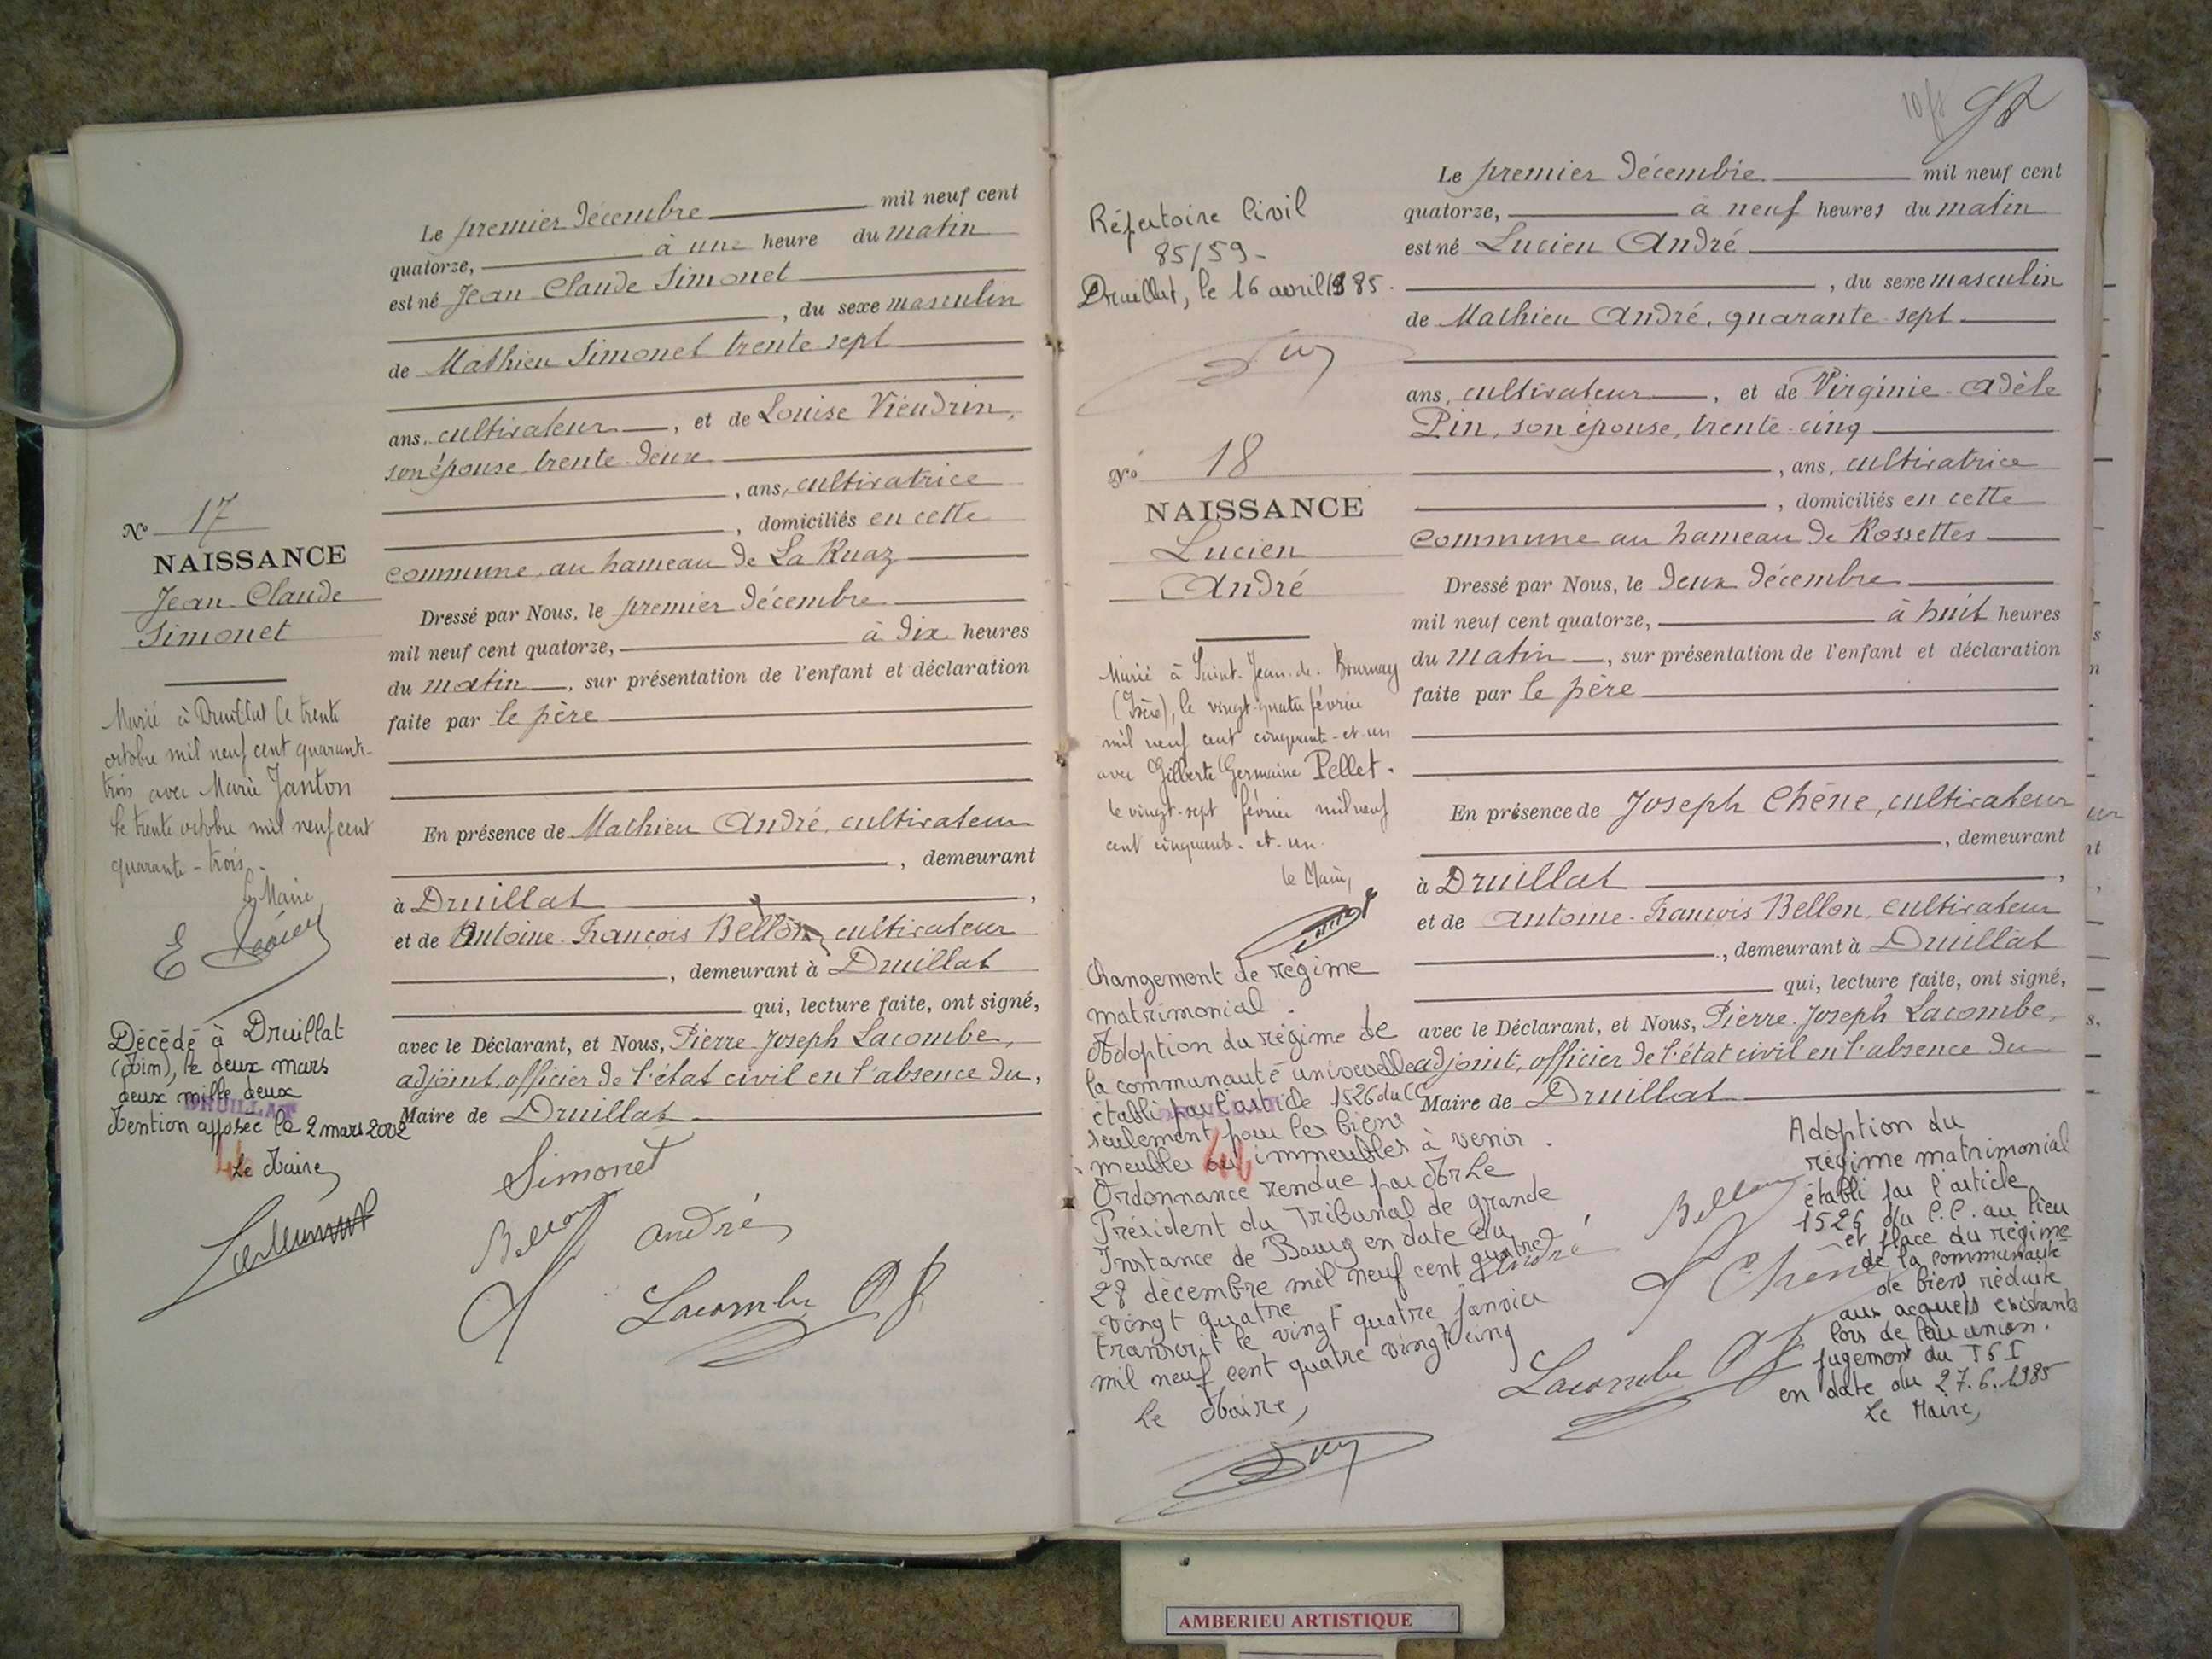 Le premier Décembre mil neuf cent
quatorze, à une heure du matin
est né Jean Claude Simonet
, du sexe masculin
de Mathieu Simonet trente sept
ans, cultivateur, et de Louise Vieudrin,
son épouse trente-deux
, ans, cultivatrice
, domiciliés en cette
commune, au hameau de La Ruaz
Dressé par Nous, le premier Décembre
mil neuf cent quatorze, à dix heures
du matin, sur présentation de l'enfant et déclaration
faite par le père
En présence de Mathieu André, cultivateur
, demeurant
à Druillat,
et de Antoine-François Bellon, cultivateur
, demeurant à Druillat
qui, lecture faite, ont signé,
avec le Déclarant, et Nous, Pierre Joseph Lacombe,
adjoint, officier de l'état civil en l'absence du,
Maire de Druillat
Simonet
Bellon
André
Lacombe
No 17
NAISSANCE
Jean-Claude
Simonet
Marié à Druillat le trente
octobre mil neuf cent quarante-
trois avec Marie Janton
le trente octobre mil neuf cent
quarante-trois.
Le Maire
Décédé à Druillat
(Ain), le deux mars
deux mille deux
DRUILLAT
Mention apposée le 2 mars 2002
Le Maire
Le premier Décembre mil neuf cent
quatorze, à neuf heures du matin
est né Lucien André
, du sexe masculin
de Mathieu André, quarante-sept
ans, cultivateur, et de Virginie-Adèle
Pin, son épouse, trente-cinq
, ans, cultivatrice
, domiciliés en cette
commune au hameau de Rossettes
Dressé par Nous, le Deux Décembre
mil neuf cent quatorze, à huit heures
du matin, sur présentation de l'enfant et déclaration
faite par le père
En présence de Joseph Chêne, cultivateur
, demeurant
à Druillat,
et de Antoine-François Bellon, cultivateur
, demeurant à Druillat
qui, lecture faite, ont signé,
avec le Déclarant, et Nous, Pierre-Joseph Lacombe,
adjoint, officier de l'état civil en l'absence du
Maire de Druillat
Bellon
André
Chêne
Lacombe
Répertoire Civil
85/59-
Druillat, le 16 avril 1985.
No 18
NAISSANCE
Lucien
André
Marié à Saint-Jean-de-Bournay
(Isère), le vingt-quatre février
mil neuf cent cinquante-et-un
avec Gilberte Germaine Pellet.
le vingt-sept février mil neuf
cent cinquante-et-un.
le Maire,
Changement de régime
matrimonial.
Adoption du régime de
la communauté universelle
établi par l'article 1526 du CC
seulement pour les biens
meubles ou immeubles à venir.
Ordonnance rendue par Mr Le
Président du Tribunal de Grande
Instance de Bourg en date du
28 décembre mil neuf cent quatre
vingt quatre
transcrit le vingt quatre janvier
mil neuf cent quatre vingt cinq
Le Maire,
Adoption du
régime matrimonial
établi par l'article
1526 du C.C. au lieu
et place du régime
de la communauté
de biens réduite
aux acquets existants
lors de leur union.
jugement du TGI
en date du 27.6.1985
Le Maire,
AMBERIEU ARTISTIQUE